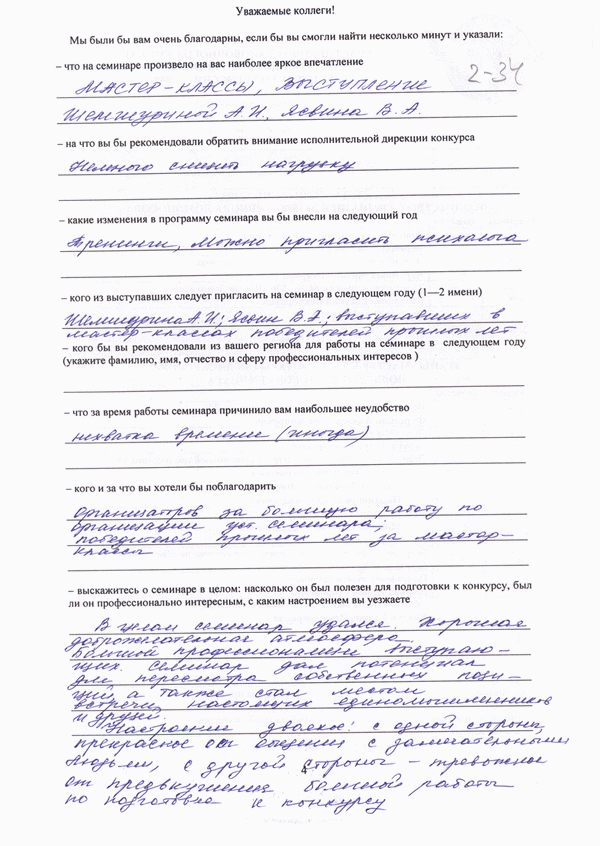 Уважаемые коллеги!
Мы были бы вам очень благодарны, если бы вы смогли найти несколько минут и указали:
– что на семинаре произвело на вас наиболее яркое впечатление
2-34
Мастер-классы, выступление
Шемшуриной А.И, Ясвина В.А.
– на что вы бы рекомендовали обратить внимание исполнительной дирекции конкурса
Немного снизить нагрузку
– какие изменения в программу семинара вы бы внесли на следующий год
Тренинги, можно пригласить психолога
– кого из выступавших следует пригласить на семинар в следующем году (1—2 имени)
Шемшурина А.И; Ясвин В.А.; выступавших в
мастер-классах победителей прошлых лет
– кого бы вы рекомендовали из вашего региона для работы на семинаре в следующем году
(укажите фамилию, имя, отчество и сферу профессиональных интересов )
– что за время работы семинара причинило вам наибольшее неудобство
нехватка времени (иногда)
– кого и за что вы хотели бы поблагодарить
Организаторов за большую работу по
организации уст. семинара;
победителей прошлых лет за мастер-
классы
– выскажитесь о семинаре в целом: насколько он был полезен для подготовки к конкурсу, был
ли он профессионально интересным, с каким настроением вы уезжаете
В целом семинар удался. Хорошая
доброжелательная атмосфера.
Большой профессионализм выступаю-
щих. Семинар дал потенциал
для пересмотра собственных пози-
ций а также стал местом
встречи настоящих единомышленников
и друзей.
Настроение двоякое: с одной стороны,
прекрасное от общения с замечательными
людьми, с другой стороны – тревожное
4
от предвкушения большой работы
по подготовке к конкурсу